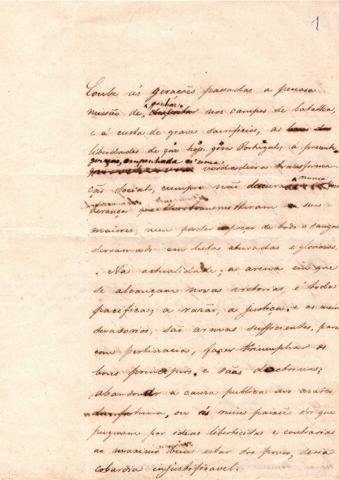 1
Coube ás gerações passadas a penosa
missão de ganhar nos campos de batalha,
e á custa de graves sacrificios, as
liberdades de que hoje goza Portugal; á presente
geração, empenhada n'uma verdadeira transforma
ção social, cumpre não
herança que lhe transmittiram os seus
maiores, nem perder o preço de todo o sangue
derramado em lutas aturadas e gloriosas.
Na actualidade, a arena em que
se alcançam novas victorias, é toda
pacifica; a razão, a justiça, e os meios
são armas sufficientes, para
com pertinacia, fazer triumphar os
bons principios, e sãs doctrinas;
abandonar a causa publica aos acasos
da fortuna, ou ás ruins paixões dos que
pugnam por ideas liberticidas e contrarias
ao maximo bem estar dos povos, seria
cobardia injustificavel.